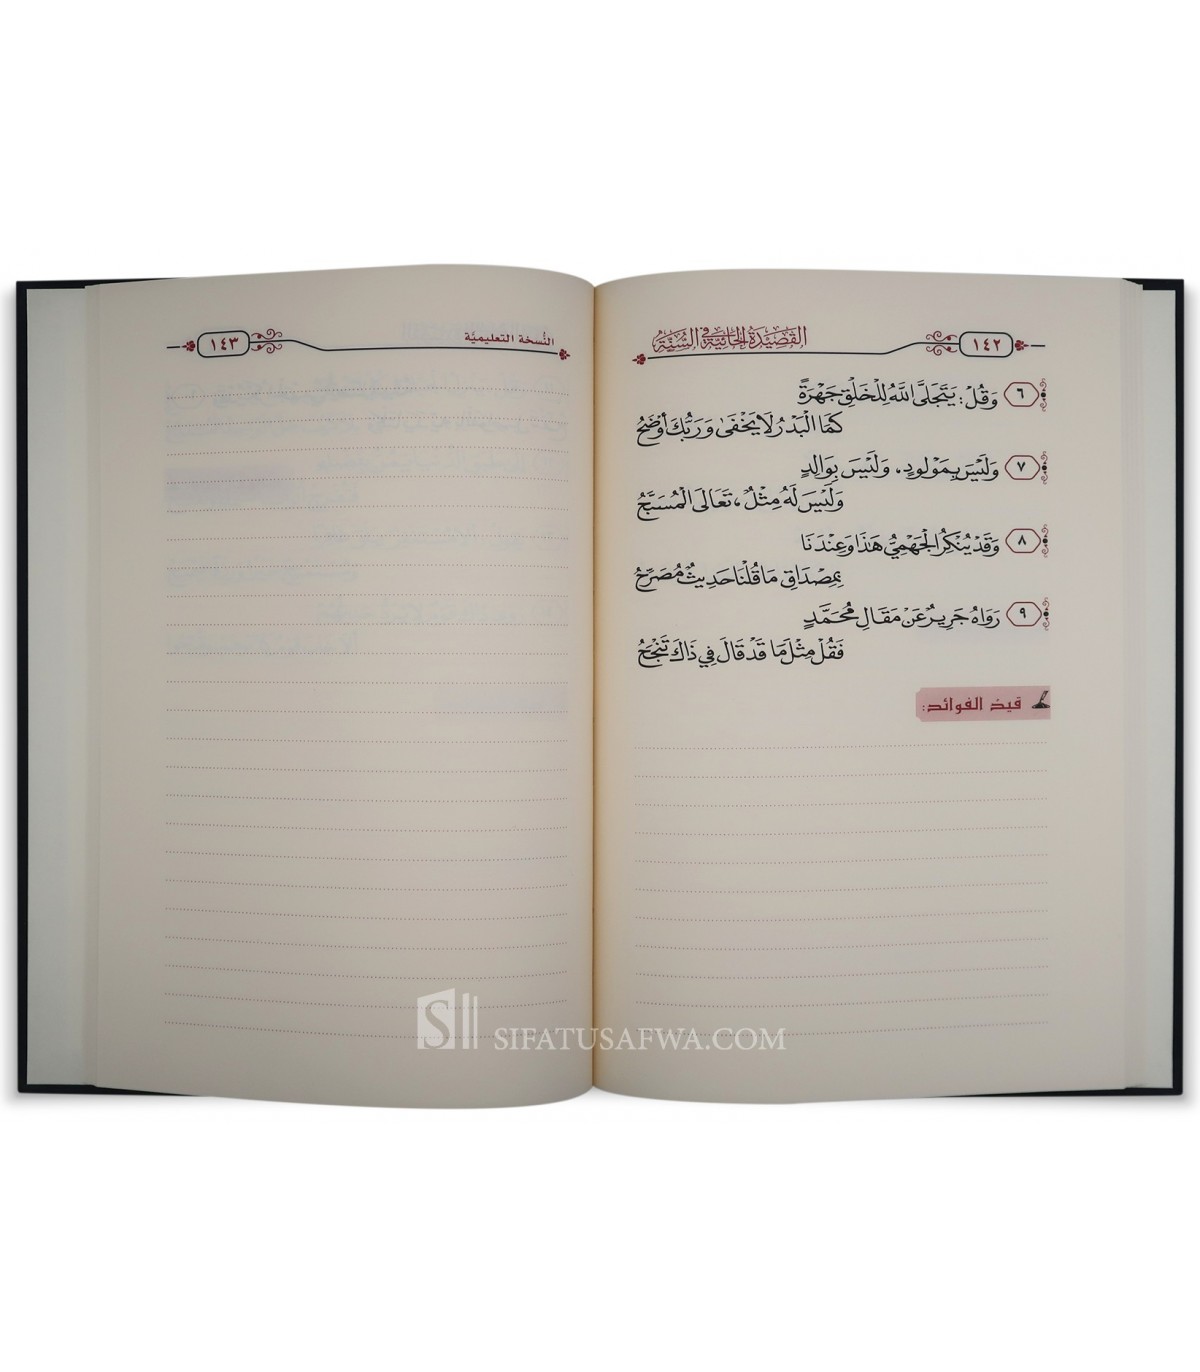 ١٤٢
القَصِيدَةُ الحَائِيَّةُ فِي السُّنِّيَّةُ
٦ وَقُلْ: يَتَجَلَّى اللَّهُ لِلْخَلْقِ جَهْرَةً
كَمَا الْبَدْرُ لَا يَخْفَى وَرَبُّكَ أَوْضَحُ
٧ وَلَيْسَ بِمَوْلُودٍ، وَلَيْسَ بِوَالِدٍ
وَلَيْسَ لَهُ مِثْلٌ، تَعَالَى الْمُسَبَّحُ
٨ وَقَدْ يُنْكِرُ الْجَهْمِيُّ هَذَا وَعِنْدَنَا
بِمِصْدَاقِ مَا قُلْنَا حَدِيثٌ مُصَرِّحُ
٩ رَوَاهُ جَرِيرٌ عَنْ مَقَالِ مُحَمَّدٍ
فَقُلْ مِثْلَ مَا قَدْ قَالَ فِي ذَاكَ تَنْجَحُ
قيد الفوائد:
النُّسخة التعليميَّة
١٤٣
SIFATUSAFWA.COM